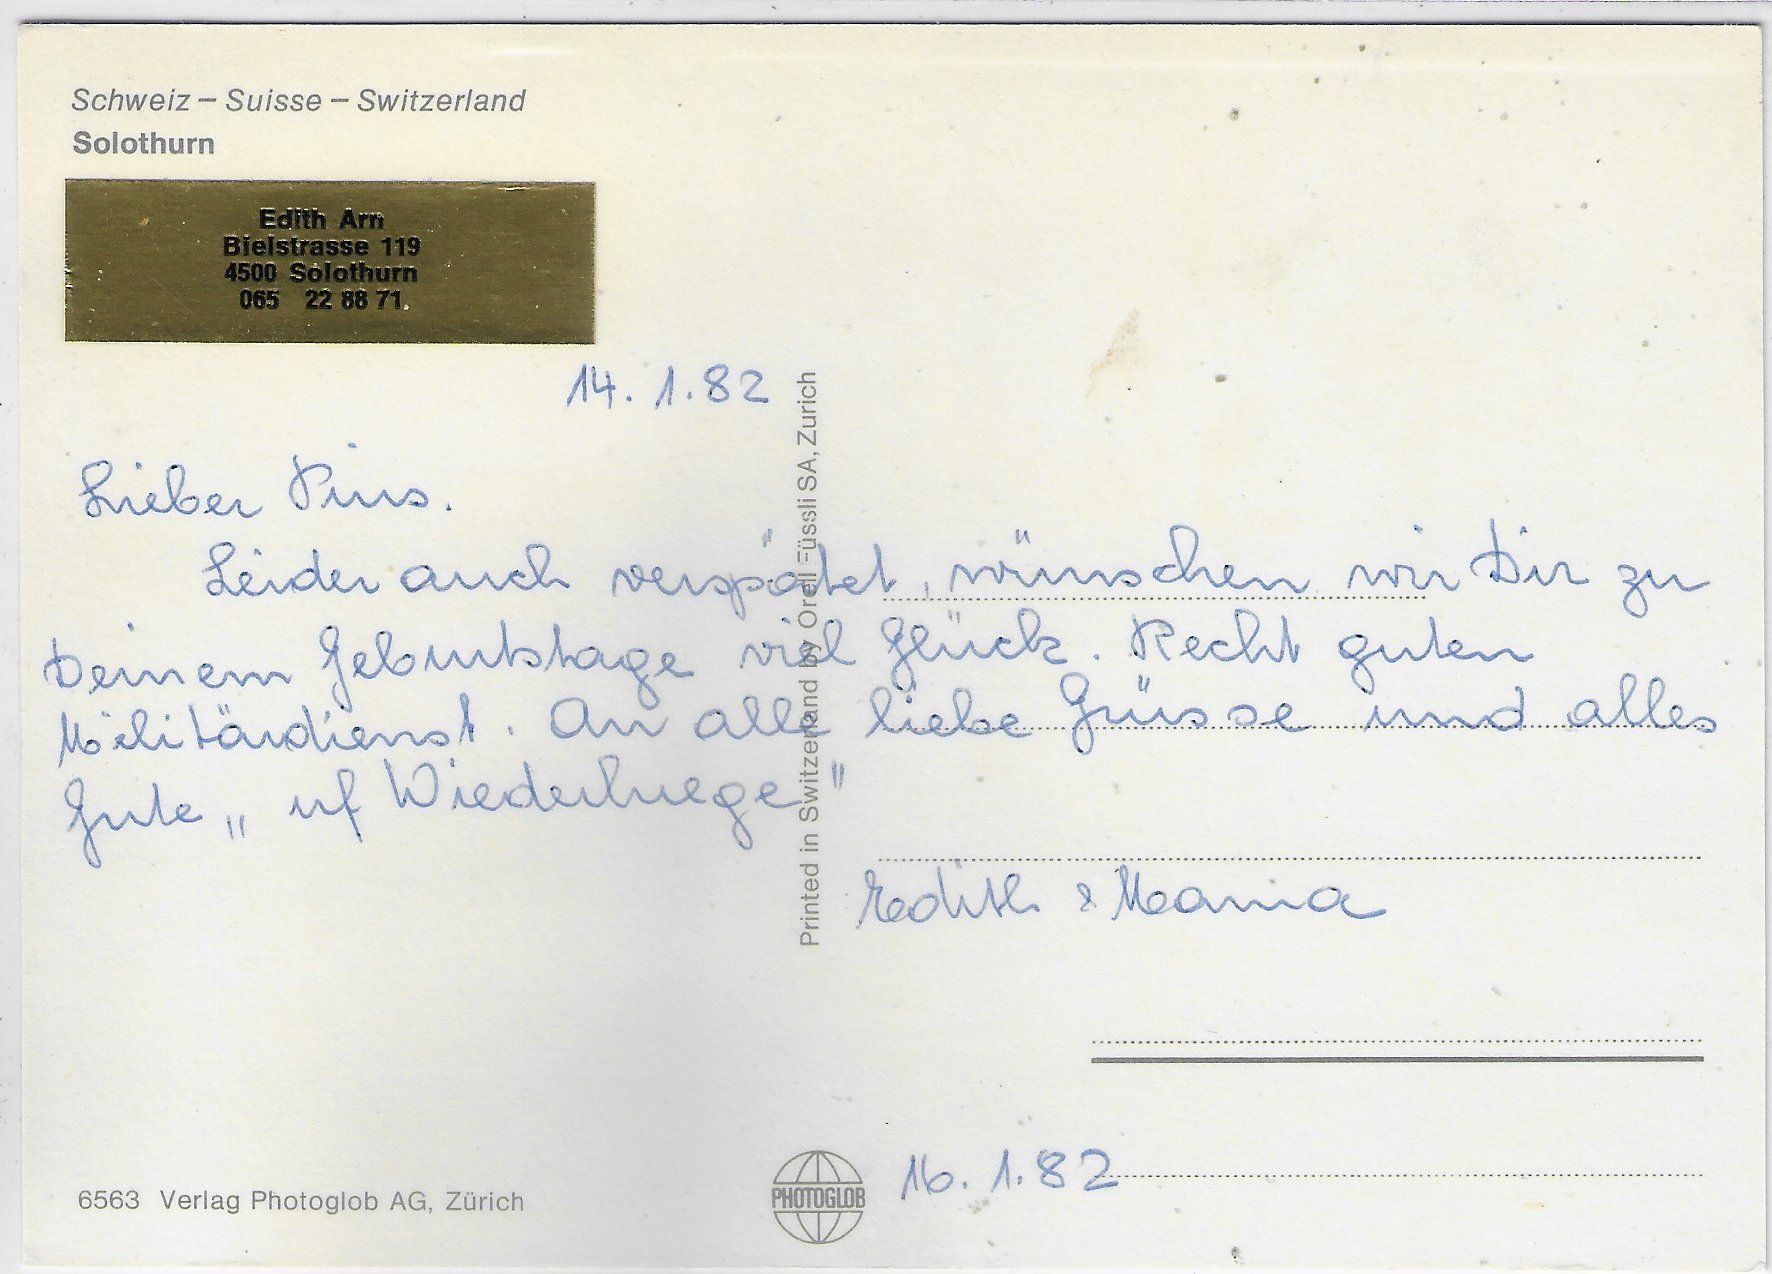 Schweiz – Suisse – Switzerland
Solothurn
Edith Arn
Bielstrasse 119
4500 Solothurn
065 22 88 71
14. 1. 82
Lieber Pius.
Leider auch verspätet, wünschen wir Dir zu
Deinem Geburtstage viel Glück. Recht guten
Militärdienst. An alle liebe Grüsse und alles
Gute „uf Wiederluege"
Edith & Mama
Printed in Switzerland by Orell Füssli SA, Zurich
16. 1. 82
PHOTOGLOB
6563 Verlag Photoglob AG, Zürich